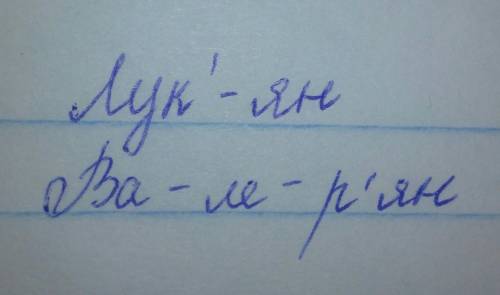 Лук'-ян
Ва-ле-р'ян